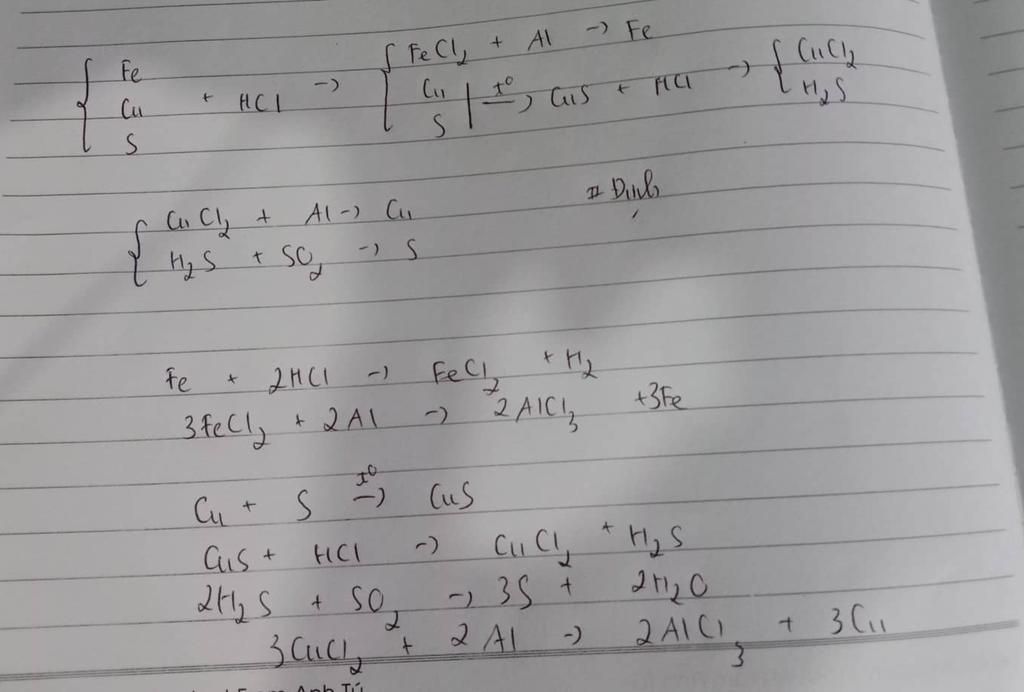 { Fe
Cu + HCl →
S
{ FeCl₂ + Al → Fe
Cu
S | t⁰→ CuS + HCl → { CuCl₂
H₂S
{ CuCl₂ + Al → Cu
H₂S + SO₂ → S
Fe + 2HCl → FeCl₂ + H₂
3FeCl₂ + 2Al → 2AlCl₃ + 3Fe
Cu + S t⁰→ CuS
CuS + HCl → CuCl₂ + H₂S
2H₂S + SO₂ → 3S + 2H₂O
3CuCl₂ + 2Al → 2AlCl₃ + 3Cu
Anh Tú